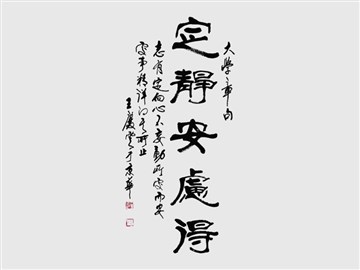 大学章句
定静安慮得
志有定向心不妄動所處而安
處事精詳得其所止
王慶雲于京華